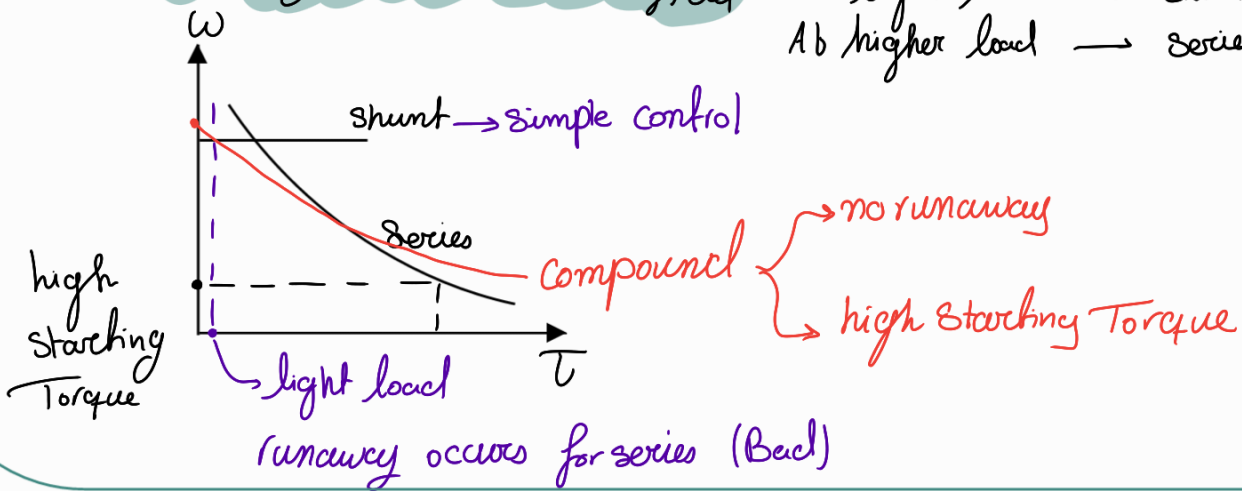 Ab higher load → serie
ω
shunt → simple control
series
no runaway
compound
high starting Torque
high
starting
Torque
τ
light load
runaway occurs for series (Bad)